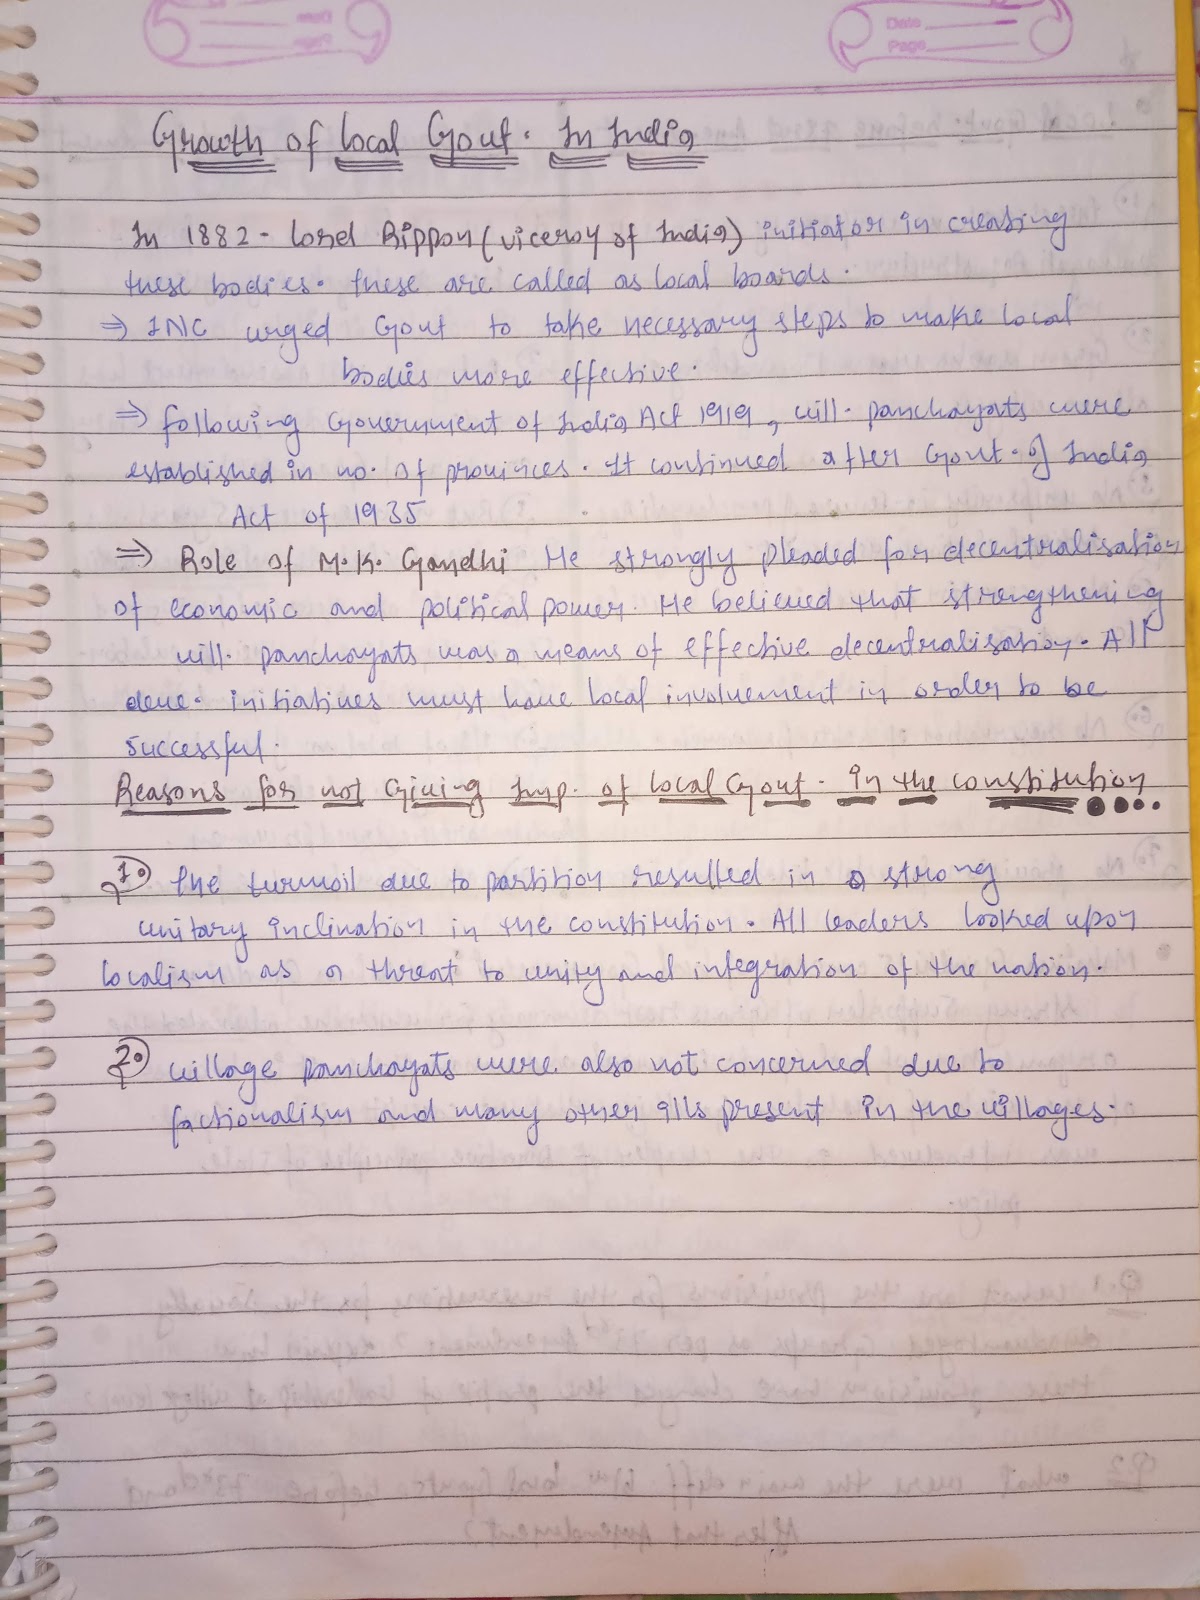 Date
Page
Growth of Local Govt. In India
In 1882 - Lord Rippon (viceroy of India) initiator in creating
these bodies. these are called as local boards.
⇒ INC urged Govt to take necessary steps to make local
bodies more effective.
⇒ following Government of India Act 1919, vill. panchayats were
established in no. of provinces. It continued after Govt. of India
Act of 1935
⇒ Role of M.K. Gandhi He strongly pleaded for decentralisation
of economic and political power. He believed that strengthening
vill. panchayats was a means of effective decentralisation. All
deve. initiatives must have local involvement in order to be
successful.
Reasons for not Giving Imp. of local Govt. in the constitution
1. The turmoil due to partition resulted in a strong
unitary inclination in the constitution. All leaders looked upon
localism as a threat to unity and integration of the nation.
2. village panchayats were also not concerned due to
factionalism and many other ills present in the villages.